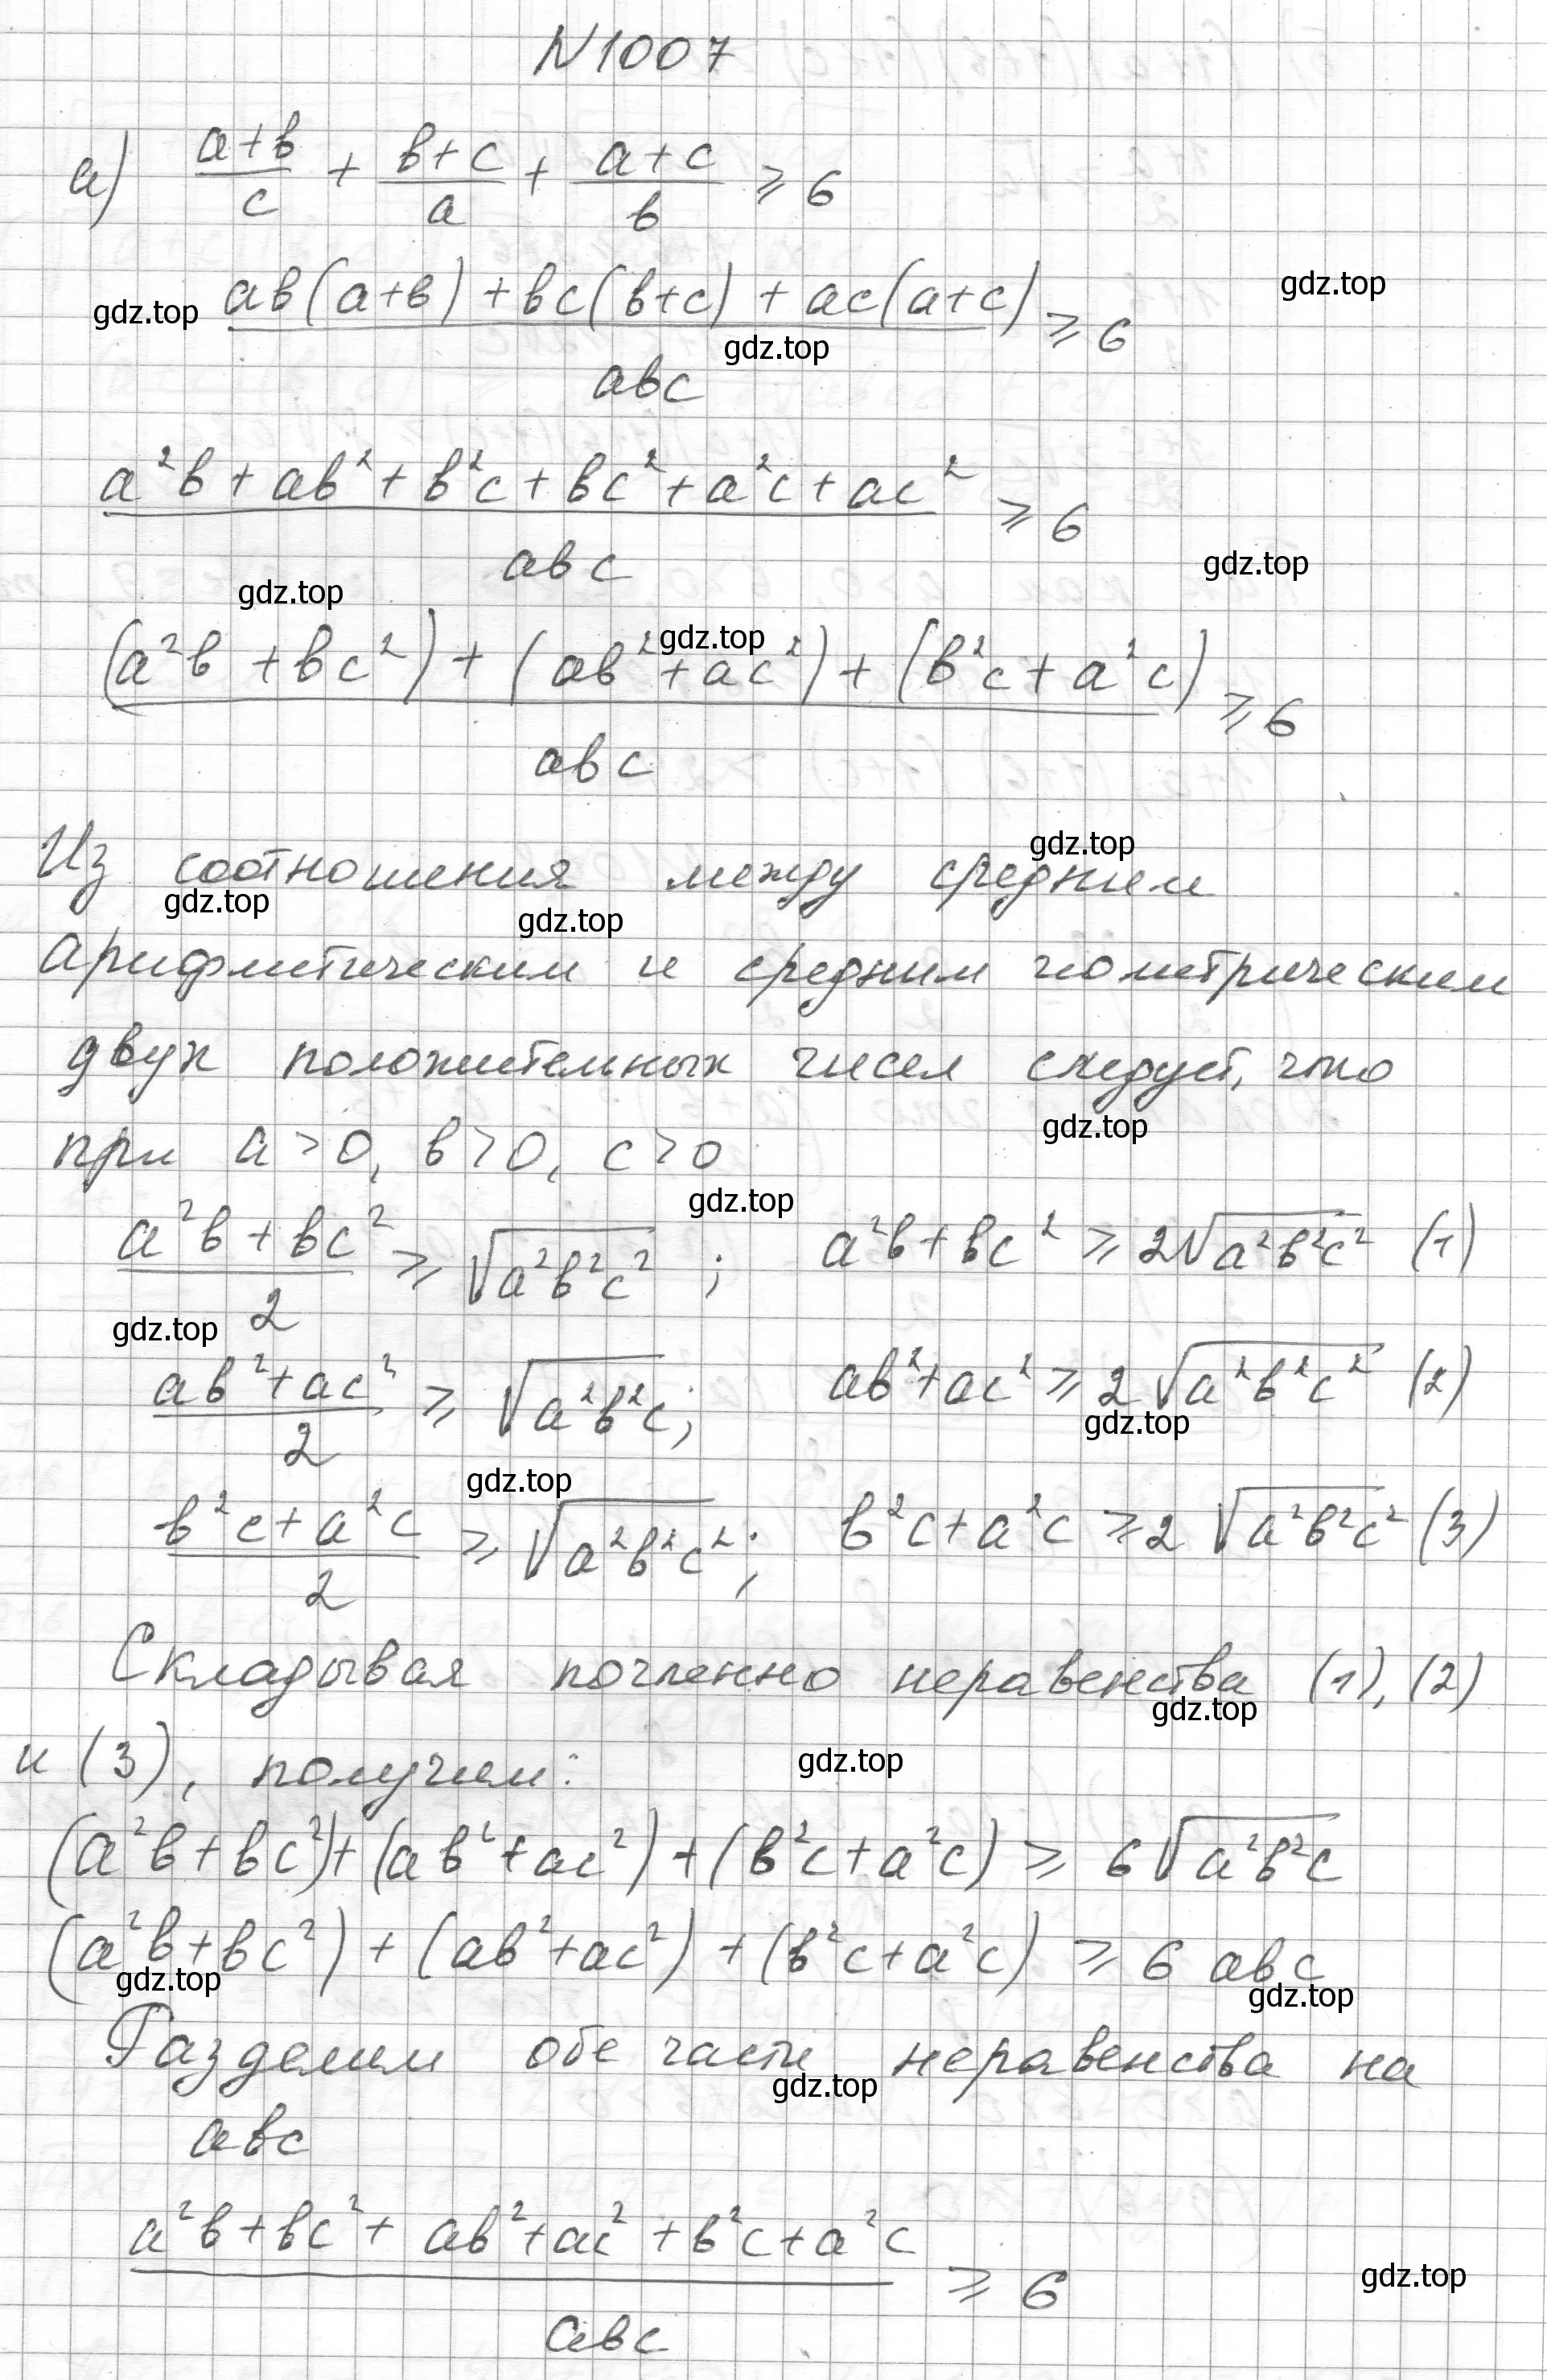 N 1007
а) (a+b)/c + (b+c)/a + (a+c)/b ⩾ 6
(ab(a+b) + bc(b+c) + ac(a+c))/abc ⩾ 6
gdz.top gdz.top gdz.top
(a²b + ab² + b²c + bc² + a²c + ac²)/abc ⩾ 6
gdz.top gdz.top
((a²b + bc²) + (ab² + ac²) + (b²c + a²c))/abc ⩾ 6
gdz.top
Из соотношения между средним
gdz.top gdz.top gdz.top
арифметическим и средним геометрическим
двух положительных чисел следует, что
gdz.top
при a > 0, b > 0, c > 0
gdz.top
(a²b + bc²)/2 ⩾ √(a²b²c²) ; a²b + bc² ⩾ 2√(a²b²c²) (1)
gdz.top
(ab² + ac²)/2 ⩾ √(a²b²c); ab² + ac² ⩾ 2√(a²b²c²) (2)
gdz.top gdz.top
(b²c + a²c)/2 ⩾ √(a²b²c²); b²c + a²c ⩾ 2√(a²b²c²) (3)
Складывая почленно неравенства (1), (2)
gdz.top
и (3), получим:
gdz.top
(a²b + bc²) + (ab² + ac²) + (b²c + a²c) ⩾ 6√(a²b²c)
(a²b + bc²) + (ab² + ac²) + (b²c + a²c) ⩾ 6 abc
gdz.top gdz.top
Разделим обе части неравенства на
gdz.top
abc
(a²b + bc² + ab² + ac² + b²c + a²c)/abc ⩾ 6
gdz.top